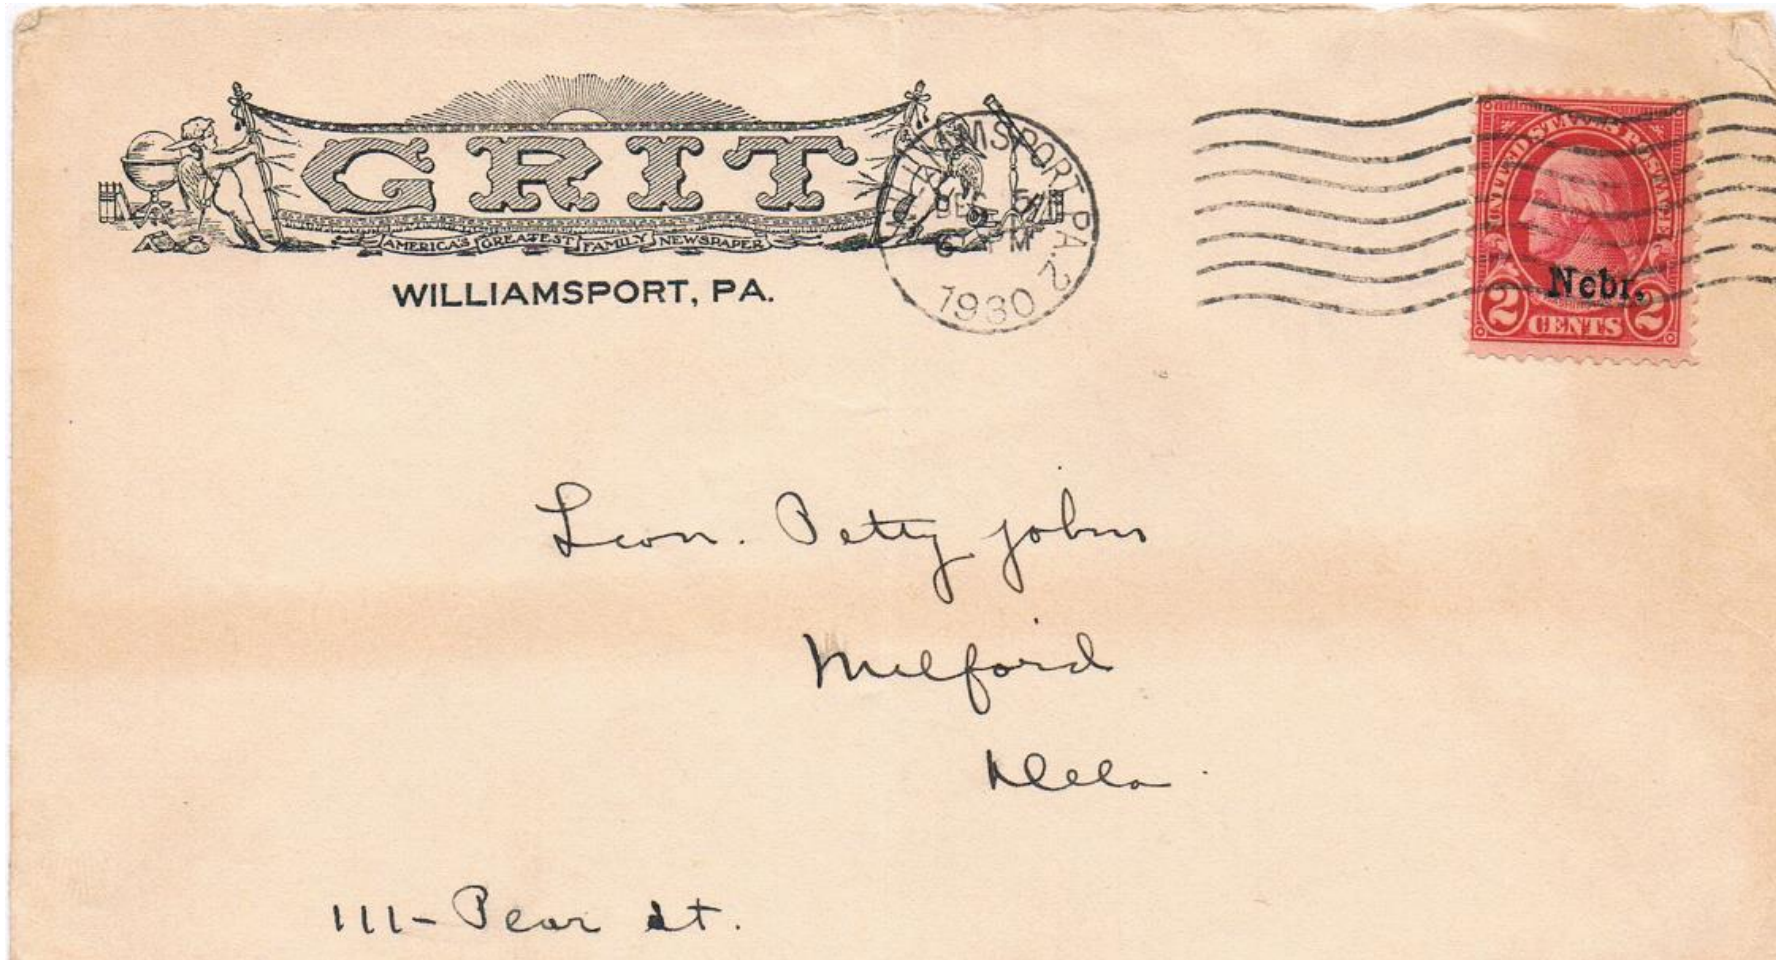 GRIT
AMERICA'S GREATEST FAMILY NEWSPAPER
WILLIAMSPORT, PA.
WILLIAMSPORT PA. 2
DEC
PM
1930
UNITED STATES POSTAGE
Nebr.
2 CENTS 2
Leon. Petty john
Milford
Dela.
111- Pear St.